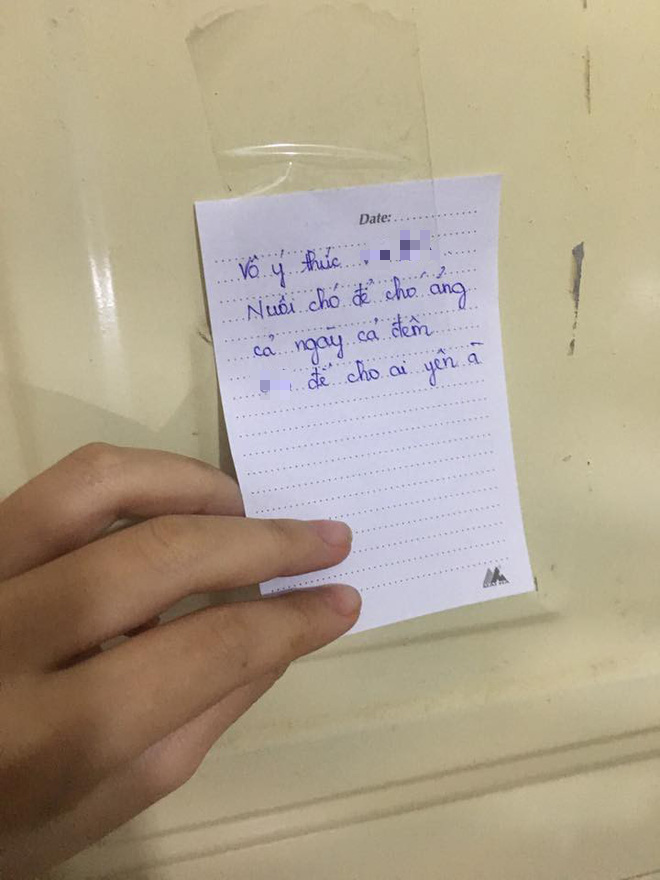 Date:
Vô ý thức
Nuôi chó để chó ẳng
cả ngày cả đêm
để cho ai yên à